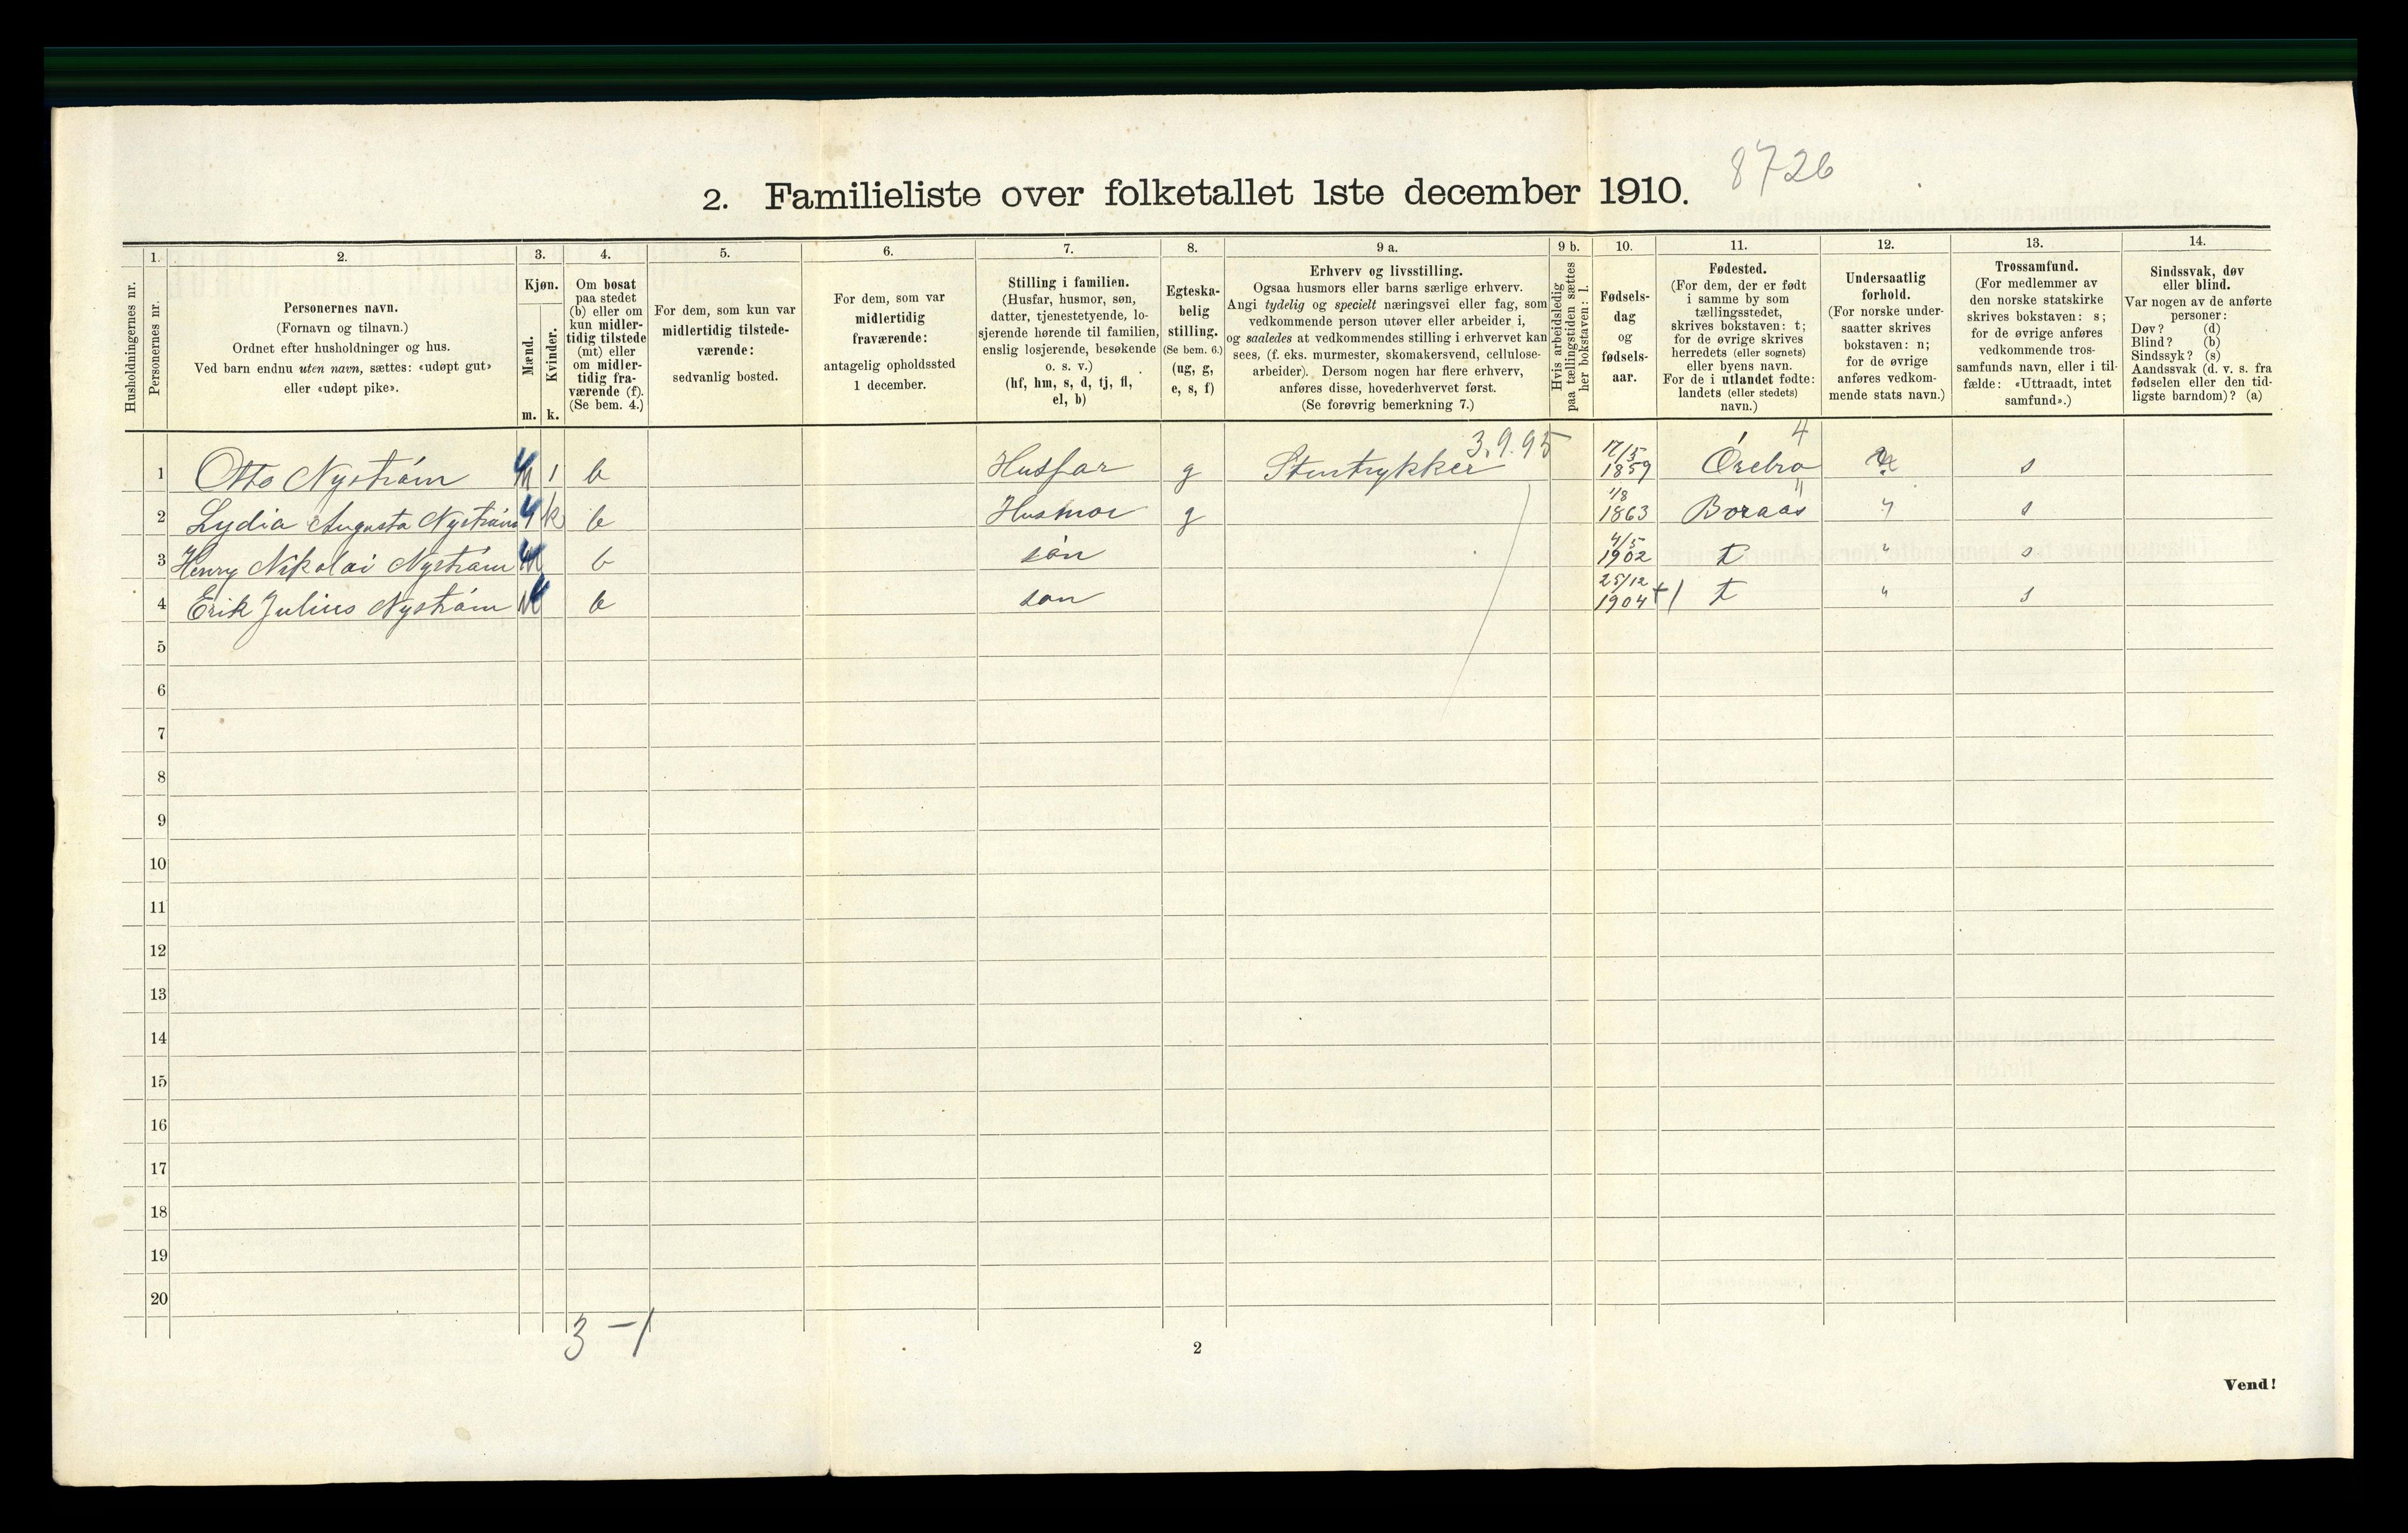 8726
2. Familieliste over folketallet 1ste december 1910.
Husholdningernes nr.
1.
Personernes nr.
2.
Personernes navn.
(Fornavn og tilnavn.)
Ordnet efter husholdninger og hus.
Ved barn endnu uten navn, sættes: «udøpt gut»
eller «udøpt pike».
3.
Kjøn.
Mænd.
Kvinder.
m. k.
4.
Om bosat
paa stedet
(b) eller om
kun midler-
tidig tilstede
(mt) eller
om midler-
tidig fra-
værende (f).
(Se bem. 4.)
5.
For dem, som kun var
midlertidig tilstede-
værende:
sedvanlig bosted.
6.
For dem, som var
midlertidig
fraværende:
antagelig opholdssted
1 december.
7.
Stilling i familien.
(Husfar, husmor, søn,
datter, tjenestetyende, lo-
sjerende hørende til familien,
enslig losjerende, besøkende
o. s. v.)
(hf, hm, s, d, tj, fl,
el, b)
8.
Egteska-
belig
stilling.
(Se bem. 6.)
(ug, g,
e, s, f)
9 a.
Erhverv og livsstilling.
Ogsaa husmors eller barns særlige erhverv.
Angi tydelig og specielt næringsvei eller fag, som
vedkommende person utøver eller arbeider i,
og saaledes at vedkommendes stilling i erhvervet kan
sees, (f. eks. murmester, skomakersvend, cellulose-
arbeider). Dersom nogen har flere erhverv,
anføres disse, hovederhvervet først.
(Se forøvrig bemerkning 7.)
9 b.
Hvis arbeidsledig
paa tællingstiden sættes
her bokstaven: l.
10.
Fødsels-
dag
og
fødsels-
aar.
11.
Fødested.
(For dem, der er født
i samme by som
tællingsstedet,
skrives bokstaven: t;
for de øvrige skrives
herredets (eller sognets)
eller byens navn.
For de i utlandet fødte:
landets (eller stedets)
navn.)
12.
Undersaatlig
forhold.
(For norske under-
saatter skrives
bokstaven: n;
for de øvrige
anføres vedkom-
mende stats navn.)
13.
Trossamfund.
(For medlemmer av
den norske statskirke
skrives bokstaven: s;
for de øvrige anføres
vedkommende tros-
samfunds navn, eller i til-
fælde: «Uttraadt, intet
samfund».)
14.
Sindssvak, døv
eller blind.
Var nogen av de anførte
personer:
Døv? (d)
Blind? (b)
Sindssyk? (s)
Aandssvak (d. v. s. fra
fødselen eller den tid-
ligste barndom)? (a)
3.9.95 4
1 Otto Nyström 1 b Husfar g Stentrykker 17/5 1859 Örebro s
2 Lydia Augusta Nyström k b Husmor g 1/8 1863 Boraås " s
3 Henry Nikolai Nyström b søn 4/5 1902 t " s
4 Erik Julius Nyström b søn 25/12 1904 t " s
5
6
7
8
9
10
11
12
13
14
15
16
17
18
19
20
3 - 1
2
Vend!